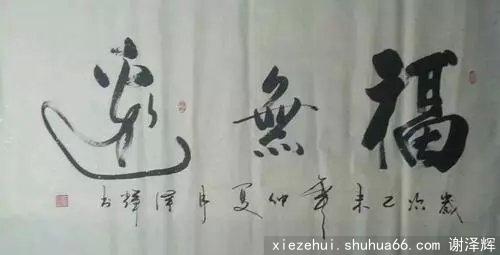 福無邊
歲次乙未年仲夏月澤輝书
xiezehui.shuhua66.com 谢泽辉